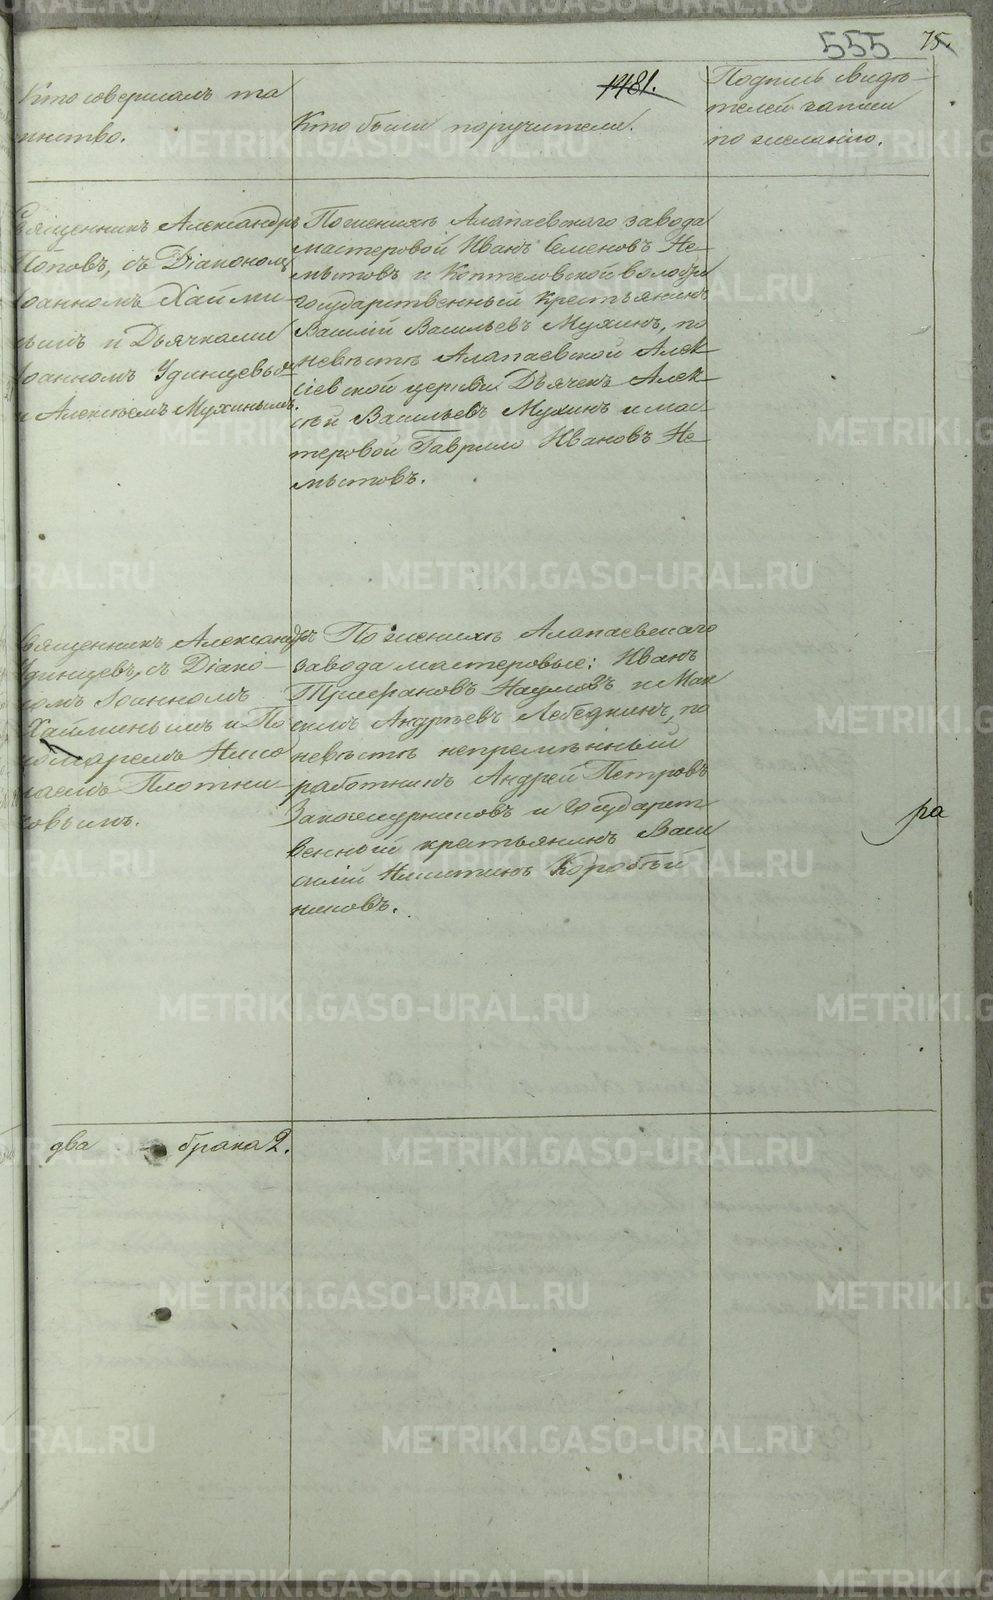 555 75.
1481.
Кто совершалъ та
инство.
Кто были поручители.
Подпись свидѣ-
телей записи
по желанію.
Священникъ Александръ
Поповъ, съ Діакономъ
Іоанномъ Хайми-
нымъ и Дьячками
Іоанномъ Удинцевымъ
и Алексѣемъ Мухинымъ.
По женихѣ Алапаевскаго завода
мастеровой Иванъ Семеновъ Не-
мытовъ и Коптеловской волости
государственный крестьянинъ
Василій Васильевъ Мухинъ, по
невѣстѣ Алапаевской Алек-
сіевской церкви Дьячекъ Алек-
сѣй Васильевъ Мухинъ и мас-
теровой Гаврило Ивановъ Не-
мытовъ.
Священникъ Александръ
Удинцевъ, съ Діако-
номъ Іоанномъ
Хайминымъ и По
номаремъ Нико
лаемъ Плотни-
ковымъ.
По женихѣ Алапаевскаго
завода мастеровые: Иванъ
Трифановъ Наумовъ и Мак
симъ Андреевъ Лебедкинъ, по
невѣстѣ непремѣнный
работникъ Андрей Петровъ
Закожурниковъ и Государст
венной крестьянинъ Васи
силій Никитинъ Коробѣй
никовъ.
ра
два - брака 2.
METRIKI.GASO-URAL.RU